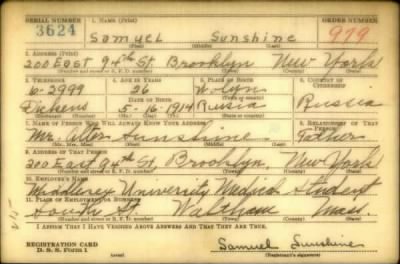 SERIAL NUMBER 1. NAME (Print) ORDER NUMBER
3624 Samuel Sunshine 979
(First) (Middle) (Last)
2. ADDRESS (Print)
200 East 94th St. Brooklyn New York
(Number and street or R. F. D. number) (Town) (County) (State)
3. TELEPHONE 4. AGE IN YEARS 5. PLACE OF BIRTH 6. COUNTRY OF CITIZENSHIP
6-2999 26 Wolyn
DATE OF BIRTH
Dickens 5-16-1914 Russia Russia
(Exchange) (Number) (Mo.) (Day) (Yr.) (State or country)
7. NAME OF PERSON WHO WILL ALWAYS KNOW YOUR ADDRESS 8. RELATIONSHIP OF THAT PERSON
Mr. Alter Sunshine Father
(Mr., Mrs., Miss) (First) (Middle) (Last)
9. ADDRESS OF THAT PERSON
200 East 94th St. Brooklyn New York
(Number and street or R. F. D. number) (Town) (County) (State)
10. EMPLOYER'S NAME
Middlesex University Medical Student
11. PLACE OF EMPLOYMENT OR BUSINESS
South St Waltham Mass.
(Number and street or R. F. D. number) (Town) (County) (State)
I AFFIRM THAT I HAVE VERIFIED ABOVE ANSWERS AND THAT THEY ARE TRUE.
REGISTRATION CARD Samuel Sunshine
D. S. S. Form 1 (over) (Registrant's signature)